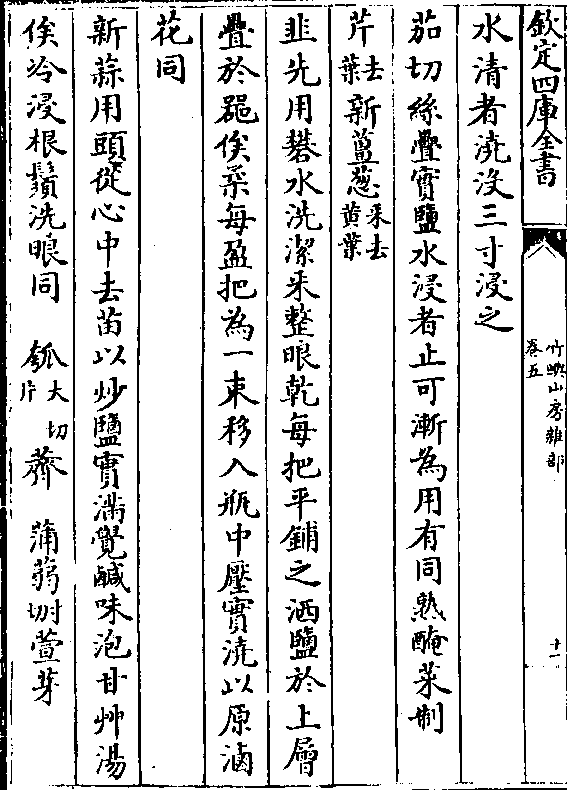 欽定四庫全書
竹嶼山房雜部
卷五
十一
水清者澆沒三寸浸之
茄切絲疊實鹽水浸者止可漸為用有同熟醃菜制
芹去葉新薑葱采去黄葉
韭先用礬水洗潔采整眼乾每把平鋪之洒鹽於上層
疊於器俟柔每盈把為一束移入瓶中壓實澆以原滷
花同
新蒜用頭從心中去苗以炒鹽實滿覺鹹味泡甘艸湯
俟冷浸根鬚洗眼同 瓠大切片 薺 蒲蒻切 萱芽